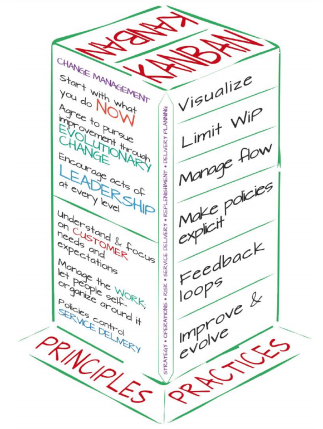 KANBAN
KANBAN
CHANGE MANAGEMENT
Start with what
you do NOW
Agree to pursue
improvement through
EVOLUTIONARY
CHANGE
Encourage acts of
LEADERSHIP
at every level
Understand & focus
on CUSTOMER
needs and
expectations
Manage the WORK,
let people self-
organize around it
Policies control
SERVICE DELIVERY
STRATEGY • OPERATIONS • RISK • SERVICE DELIVERY • REPLENISHMENT • DELIVERY PLANNING
Visualize
Limit WiP
Manage flow
Make policies
explicit
Feedback
loops
Improve &
evolve
PRINCIPLES
PRACTICES